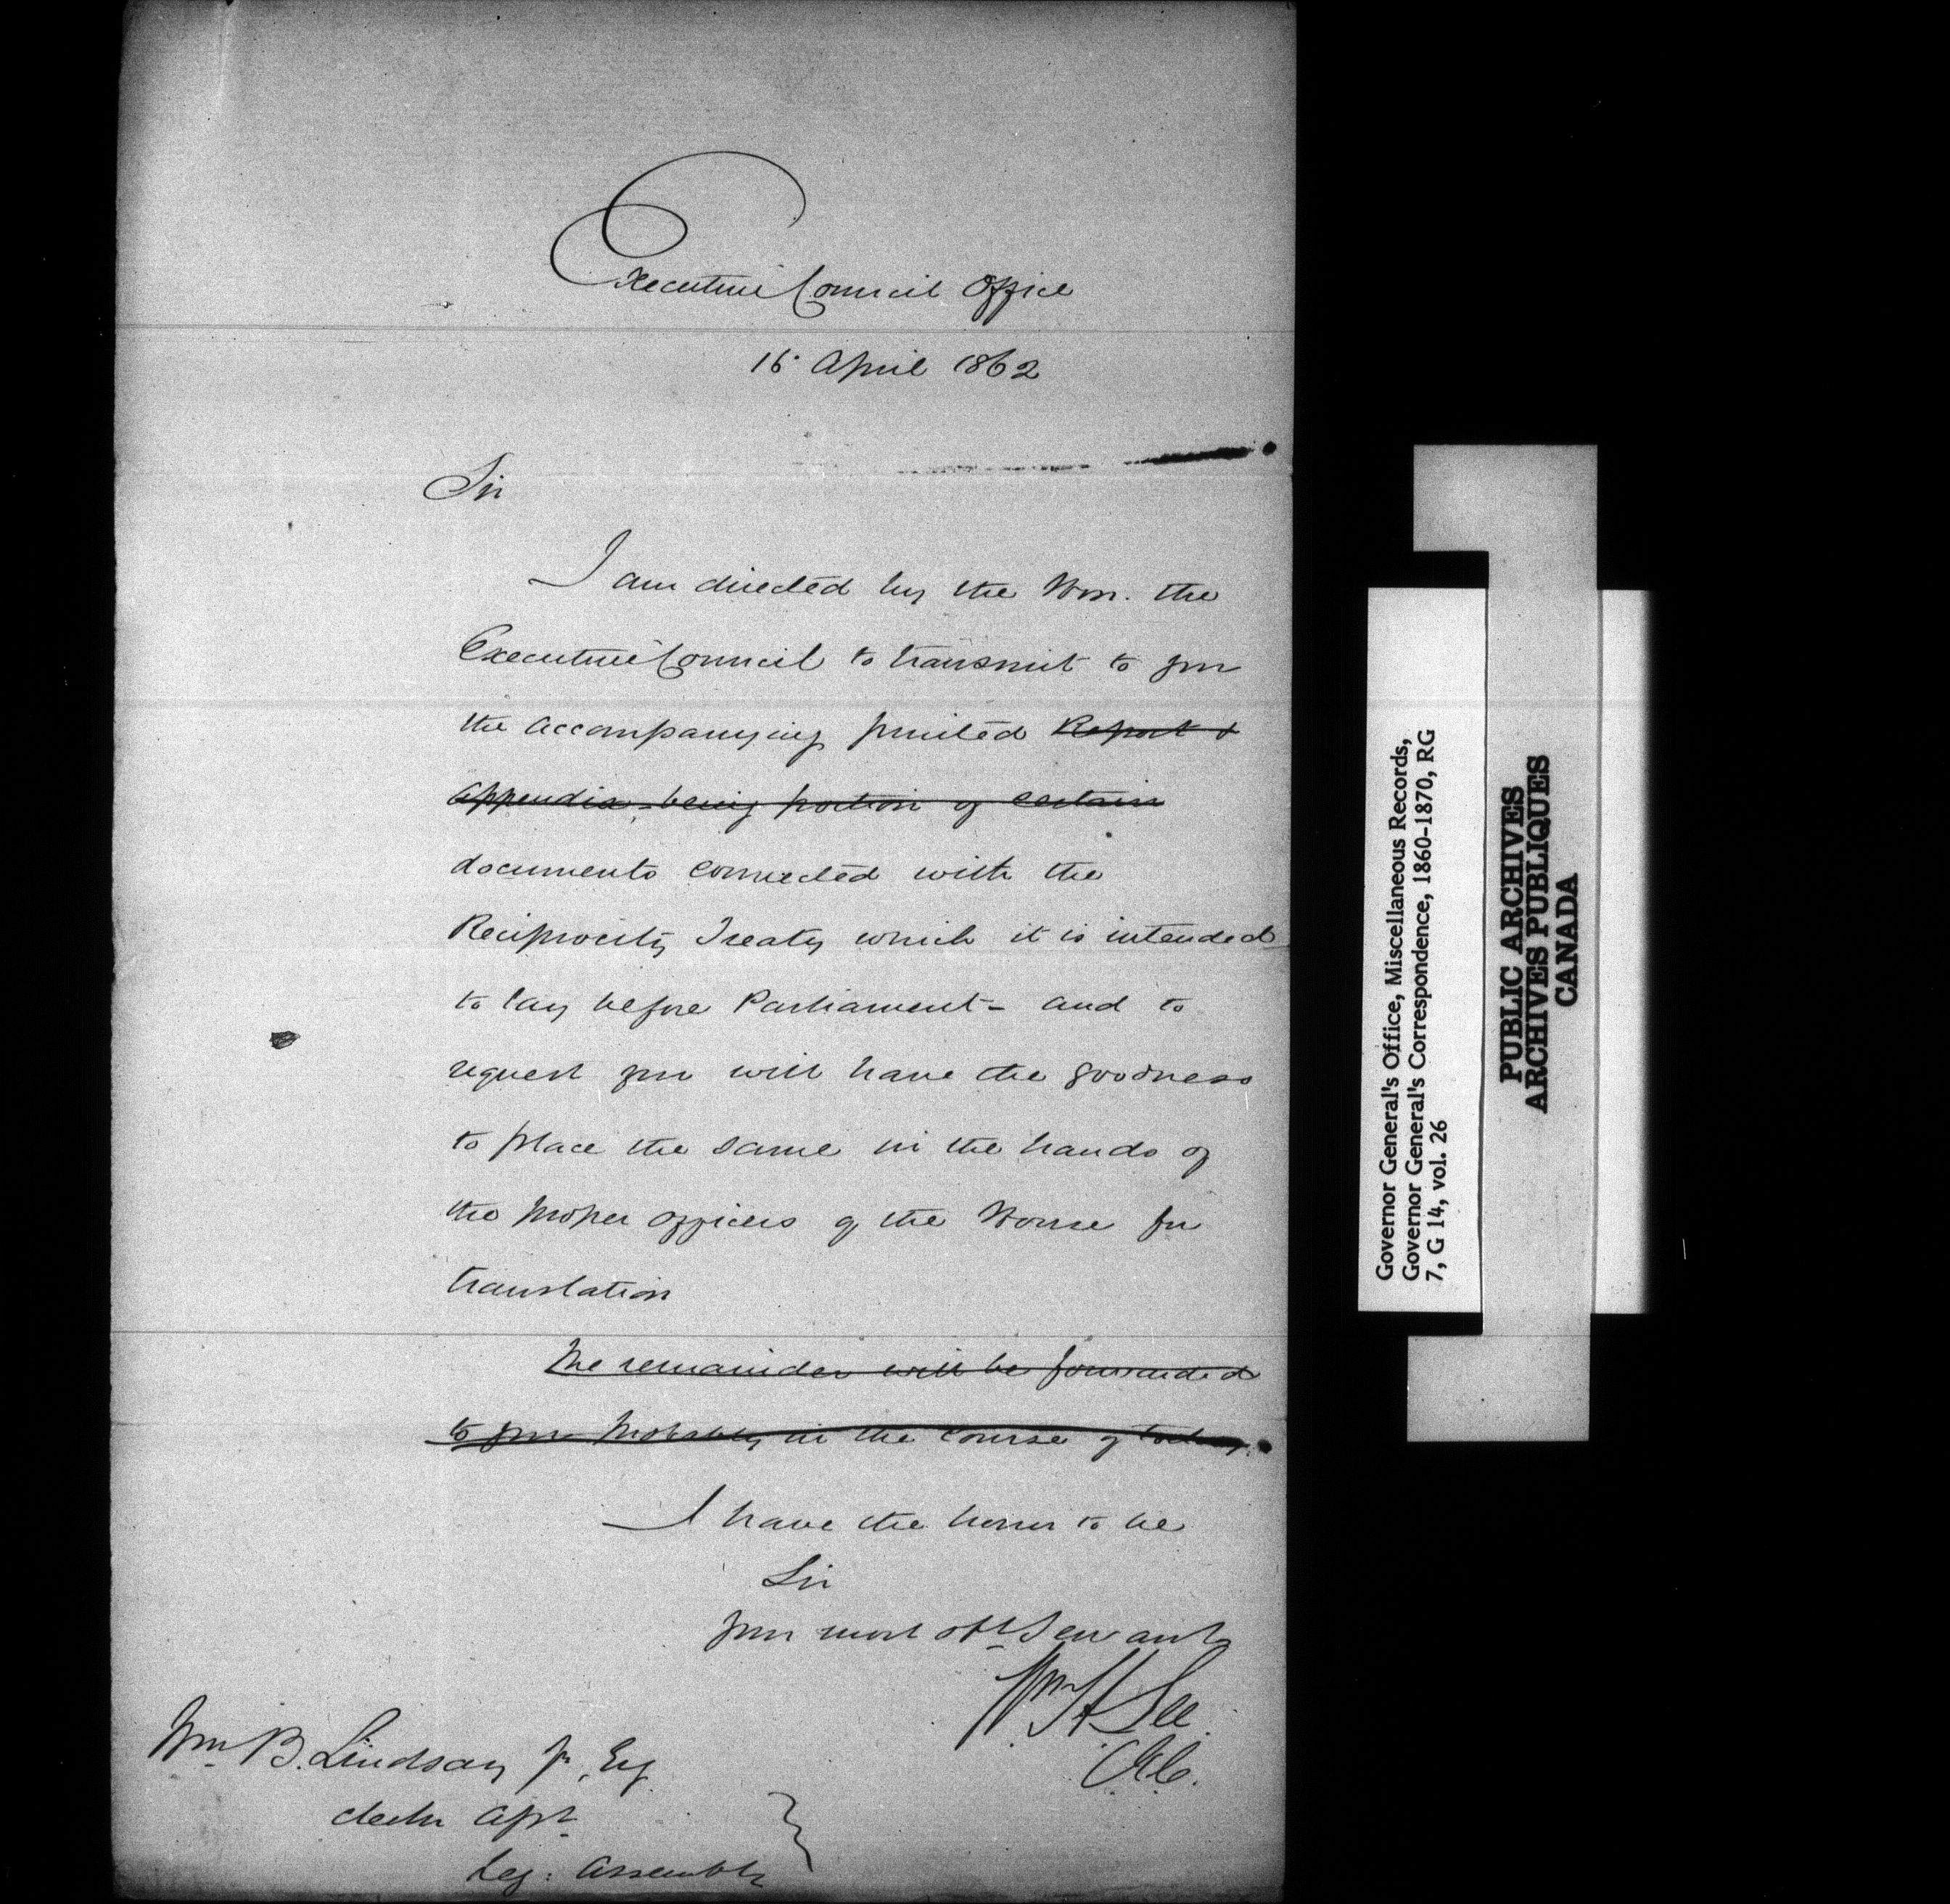 Executive Council Office
16 April 1862
Sir
I am directed by the Hon. the
Executive Council to transmit to you
the accompanying printed Report &
Appendix, being portion of certain
documents connected with the
Reciprocity Treaty which it is intended
to lay before Parliament - and to
request you will have the goodness
to place the same in the hands of
the proper officers of the House for
translation
The remainder will be forwarded
to you probably in the course of today.
I have the honor to be
Sir
your most obt Servant
Wm H Lee
C.E.C.
Wm B. Lindsay jr, Esq
Clerk Asst
Leg: Assembly
Governor General's Office, Miscellaneous Records,
Governor General's Correspondence, 1860-1870, RG
7, G 14, vol. 26
PUBLIC ARCHIVES
ARCHIVES PUBLIQUES
CANADA